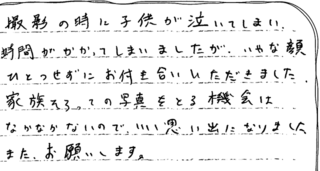 撮影の時に子供が泣いてしまい、
時間がかかってしまいましたが、いやな顔
ひとつせずにお付き合いいただきました。
家族そろっての写真をとる機会は
なかなかないので、いい思い出になりました
また、お願いします。